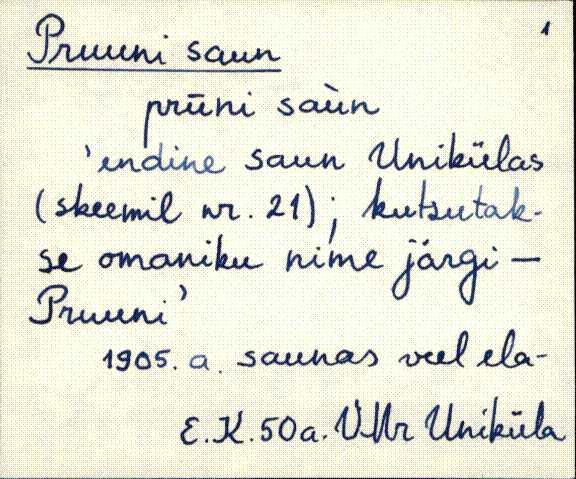 1
Pruuni saun
prūni saùn
'endine saun Unikülas
(skeemil nr. 21); kutsutak-
se omaniku nime järgi —
Pruuni'
1905. a. saunas veel ela-
E.K. 50a. VMr Uniküla